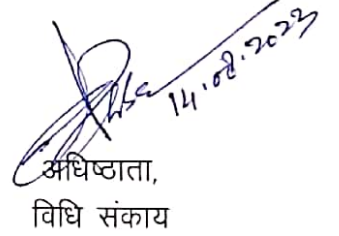 14.08.2023
अधिष्ठाता,
विधि संकाय